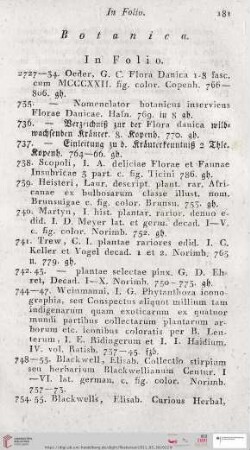 In Folio. 181
Botanica.
In Folio.
2727—34. Oeder, G. C. Flora Danica 1-8 fasc.
cum MCCCXXII. fig. color. Copenh. 766—
806. gb.
735. — Nomenclator botanicus inserviens
Florae Danicae. Hafn. 769. in 8 gb.
736. — Verzeichniß zur der Flora danica wild-
wachsenden Kräuter. 8. Kopenh. 770. gb.
737. — Einleitung zu d. Kräuterkenntniß 2 Thle.
Kopenh. 764—66. gb.
738. Scopoli, I. A. deliciae Florae et Faunae
Insubricae 3 part. c. fig. Ticini 786. gb.
739. Heisteri, Laur. descript. plant. rar. Afri-
canae e bulbosarum classe illust. nom.
Brunsuigae c. fig. color. Brunsu. 753. gb.
740. Martyn, I hist. plantar. rarior. denuo e-
did. I. D. Meyer lat. et germ. decad. I—V.
c. fig. color. Norimb. 752. gb.
741. Trew, C. I. plantae rariores edid. I. C.
Keller et Vogel decad. 1 et 2. Norimb. 763
u. 779. gb.
742. 43. — — plantae selectae pinx. G. D. Eh-
ret, Decad. I—X. Norimb. 750—773. gb.
744—47. Weinmanni, I. G. Phytanthova icono-
graphia, seu Conspectus aliquot millium tam
indigenarum quam exoticarum ex quatuor
mundi partibus collectarum plantarum ar-
borum etc. iconibus coloratis per B. Len-
terum, I E. Ridingerum et I I. Haidium.
IV. vol. Ratisb. 737—45. fzb.
748—53. Blackwell, Elisab. Collectio stirpium
seu herbarium Blackwellianum Centur. I
—VI. lat. german. c. fig. color. Norimb.
737—73.
754. 55. Blackwells, Elisab. Curious Herbal,